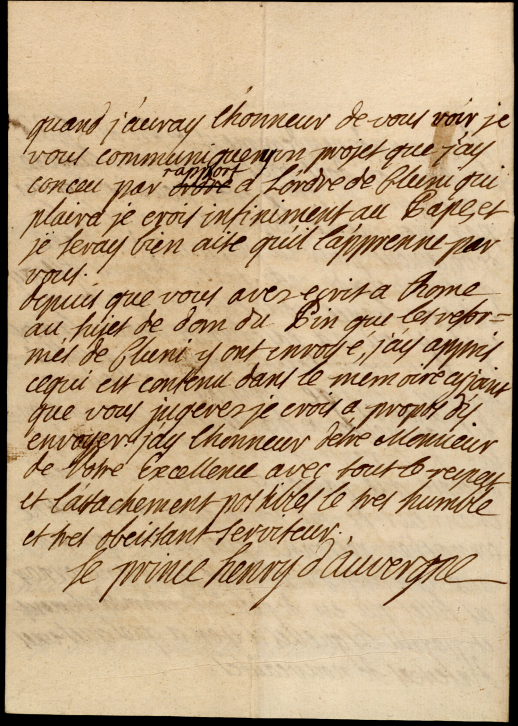 quand j'auray l'honneur de vous voir je
vous communiqueray un projet que j'ay
conceu par rapport a l'ordre de Cluni qui
plaira je crois infiniment au Pape, et
je seray bien aise quil l'apprenne par
vous.
depuis que vous avez ecrit a Rome
au sujet de dom du Pin que les refor=
més de Cluni y ont envoyé, j'ay appris
cequi est contenu dans le memoire cyjoint
que vous jugerez je crois a propos dy
envoyer j'ay l'honneur detre Monsieur
de Votre Excellence avec tout le respect
et l'attachement possibles le tres humble
et tres obeissant serviteur.
le prince henry d'auvergne